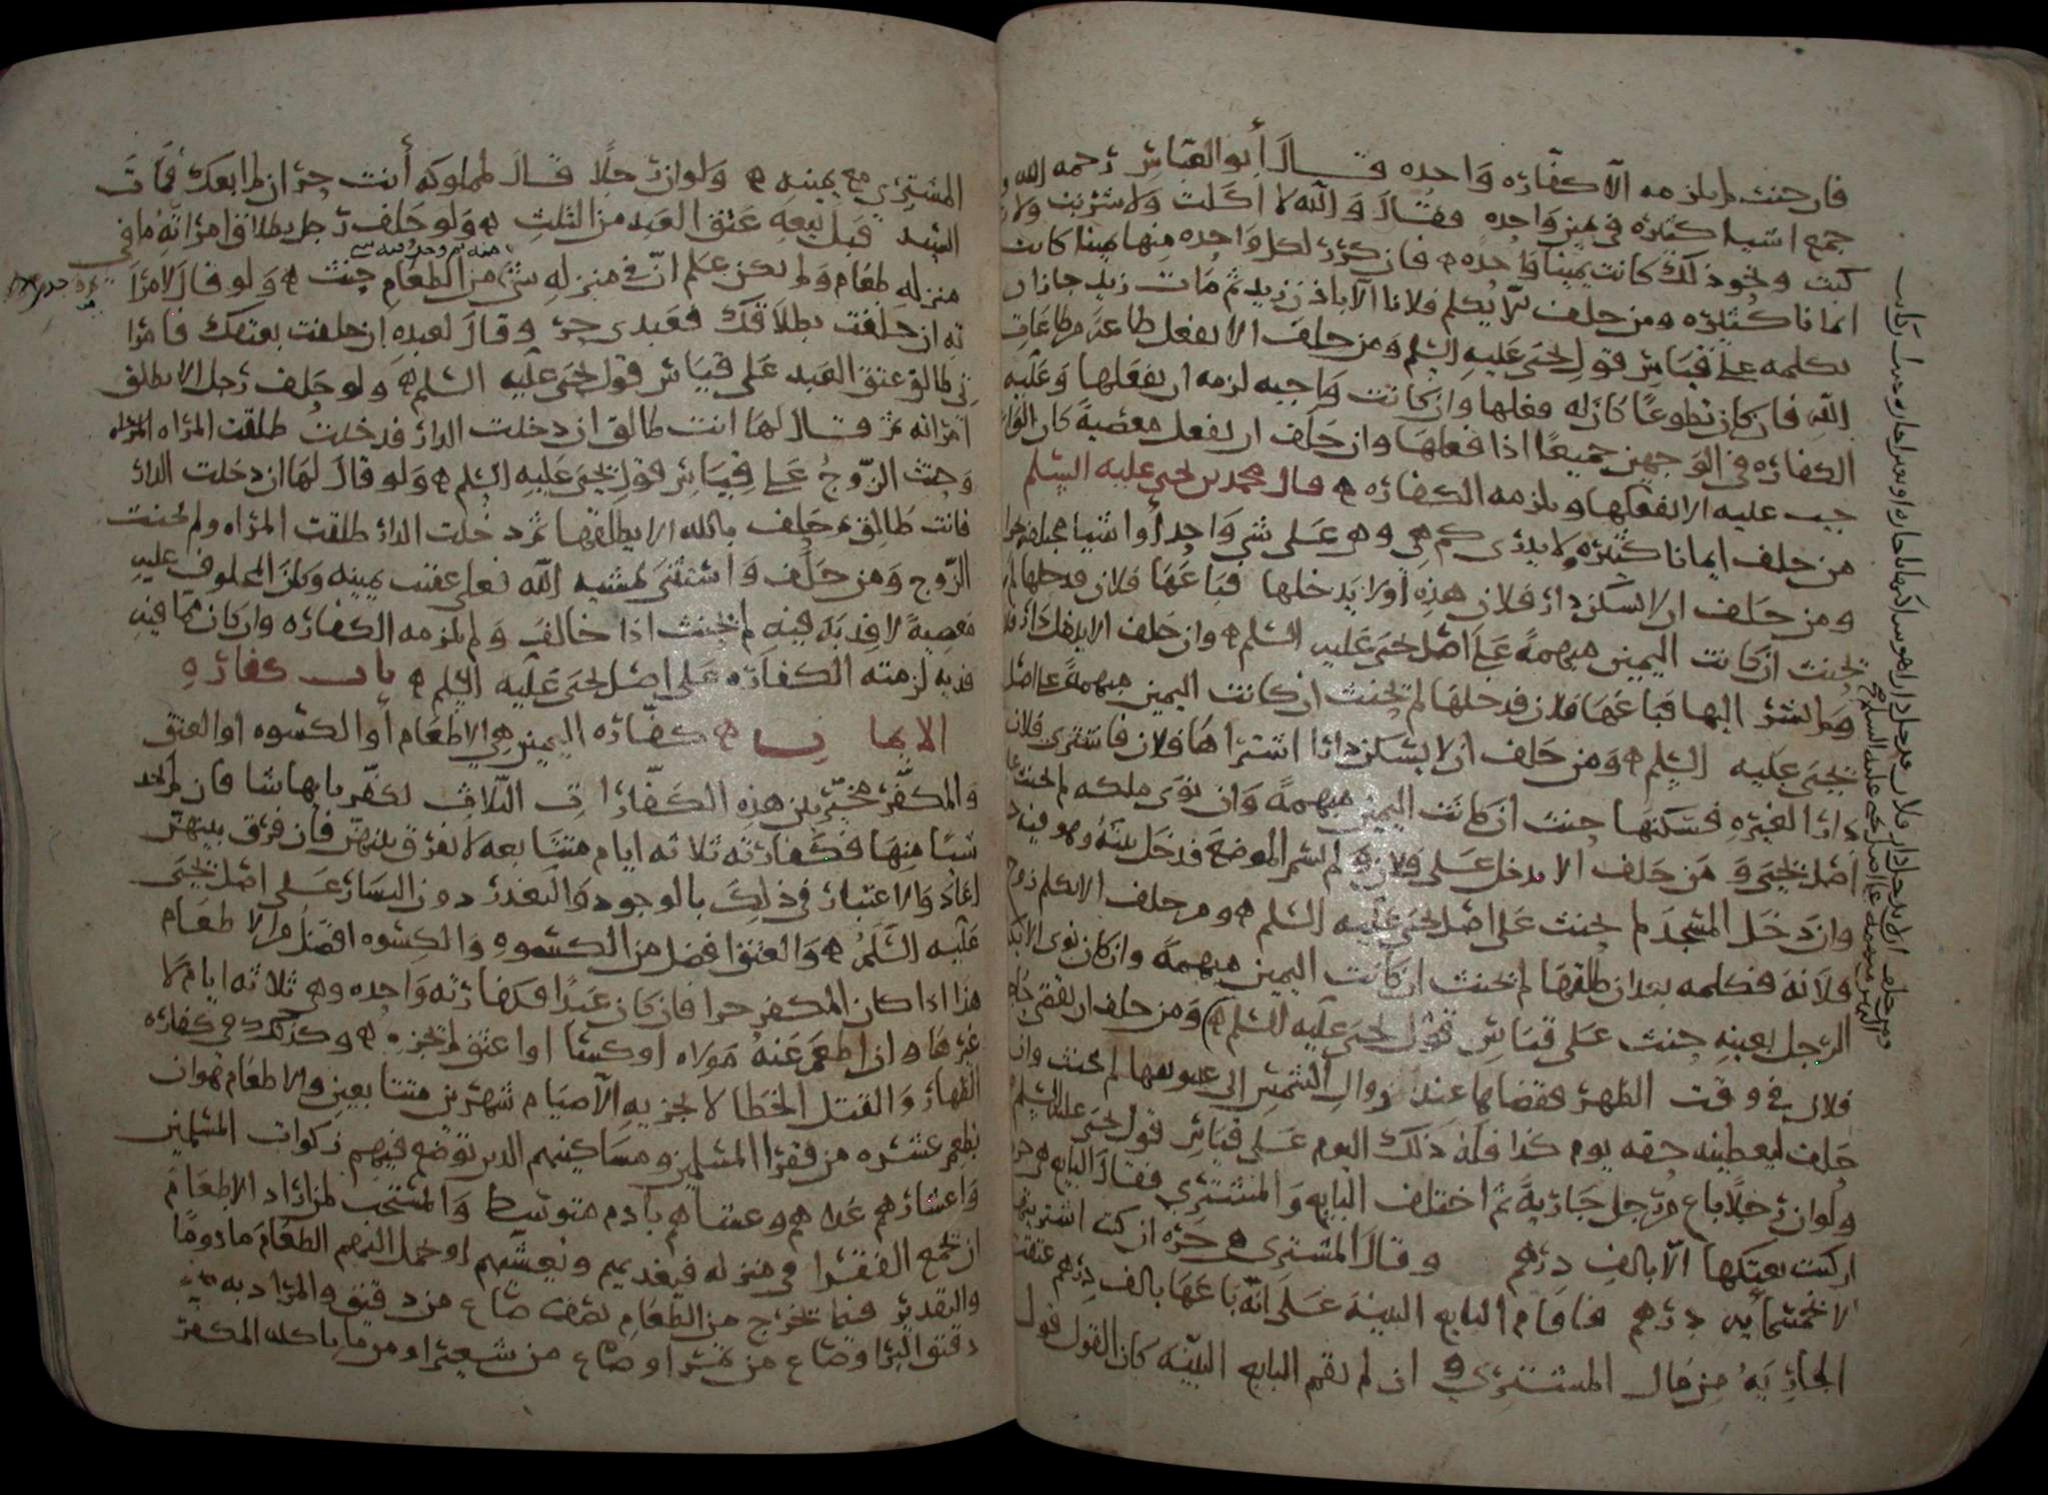 فان حنث لم يلزمه الا كفاره واحده قال أبو العباس رحمه الله
جمع اشيا كثيره في يمين واحده فقال والله لا اكلت ولا شربت ولا
كيت ونحو ذلك كانت يمينا واحده فان كرر لكل واحده منها يمينا كانت
ايمانا كثيره ومن حلف لا يكلم فلانا الا باذن زيد ثم مات زيد جاز ان
يكلمه على قياس قول يحيى عليه السلم ومن حلف الا يفعل طاعة من طاعات
الله فان كان تطوعا كان له فعلها وان كانت واجبه لزمه ان يفعلها وعليه
الكفاره في الوجهين جميعا اذا فعلها وان حلف ان يفعل معصية كان الوا
جب عليه الا يفعلها ويلزمه الكفاره قال محمد بن يحيى عليه السلم
من حلف ايمانا كثيره ولا يدرى كم هي وهي على شي واحد أو اشيا
ومن حلف ان لا يسكن دار فلان هذه أو لا يدخلها فباعها فلان فدخلها لم
يحنث ان كانت اليمين مبهمة على اصل يحيى عليه السلم وان حلف الا يدخل دار
ولم يشر اليها فباعها فلان فدخلها لم يحنث ان كانت اليمين مبهمة على اصل
يحيى عليه السلم ومن حلف ان لا يسكن دارا اشتراها فلان فاشترى فلان
دارا لغيره فسكنها حنث ان كانت اليمين مبهمة وان نوى ملكه لم يحنث
اصل يحيى ومن حلف الا يدخل على فلان ولم يسم الموضع فدخل بيته وهو فيه
وان دخل المسجد لم يحنث على اصل يحيى عليه السلم ومن حلف الا يكلم زوج
فلانه فكلمه بعد ان طلقها لم يحنث ان كانت اليمين مبهمة وان كان نوى الا
الرجل بعينه حنث على قياس قول يحيى عليه السلم ومن حلف ان يقضي
فلان في وقت الظهر فقضاها عند زوال الشمس الى لم يحنث وان
حلف ليعطينه حقه يوم كذا فله ذلك اليوم على قياس قول يحيى عليه السلم
ولو ان رجلا باع من رجل جارية ثم اختلف البايع والمشتري فقال البايع هي حره
ان كنت بعتكها الا بالف درهم وقال المشترى هي حره ان كنت اشتريتها
الا بخمسمايه درهم فاقام البايع البينة على انه باعها بالف درهم عتقت
الجاريه من مال المشترى وان لم يقم البايع البينه كان القول قول
المشترى مع يمينه ولو ان رجلا قال لمملوكه أنت حر ان لم ابعك فمات
السيد قبل بيعه عتق العبد من الثلث ولو حلف رجل بطلاق امراته ما في
منزله طعام ولم يكن علم ان في منزله شي من الطعام حنث ولو قال لامرا
ته ان حلفت بطلاقك فعبدى حر وقال لعبده ان حلفت بعتقك فامرا
تي طالق عتق العبد على قياس قول يحيى عليه السلم ولو حلف رجل الا يطلق
امراته ثم قال لها انت طالق ان دخلت الدار فدخلت طلقت المراه
وحنث الزوج على قياس قول يحيى عليه السلم ولو قال لها ان دخلت الدار
فانت طالق ثم حلف بالله الا يطلقها ثم دخلت الدار طلقت المراه ولم يحنث
الزوج ومن حلف واستثنى لمشية الله تعلى عقيب يمينه وكان المحلوف عليه
معصية لا قربة فيه لم يحنث اذا خالف ولم يلزمه الكفاره وان كان مما فيه
قربه لزمته الكفاره على اصل يحيى عليه السلم باب كفاره
الايمان كفاره اليمين هي الاطعام أو الكسوه او العتق
والمكفر مخير بين هذه الكفارات الثلاث يكفر بايها شا فان لم يجد
شيا منها فكفارته ثلاثه ايام متتابعه لا يفرق بينهن فان فرق بينهن
اعاد والاعتبار في ذلك بالوجود والتعذر دون اليسار على اصل يحيى
عليه السلم والعتق افضل من الكسوه والكسوه افضل من الاطعام
هذا اذا كان المكفر حرا فان كان عبدا فكفارته واحده وهي ثلاثه ايام لا
غيرها فان اطعم عنه مولاه او كسا او اعتق لم يجزه وكذلك في كفاره
الظهار والقتل الخطا لا يجزيه الا صيام شهرين متتابعين والاطعام هو ان
يطعم عشره من فقرا المسلمين ومساكينهم الذين توضع فيهم زكوات المسلمين
واعشارهم غداهم وعشاهم بأدم متوسط والمستحب لمن اراد الاطعام
ان يجمع الفقرا في منزله فيغديهم ويعشيهم او يحمل اليهم الطعام مادوما
والتقدير فيما يخرج من الطعام نصف صاع من دقيق والمراد به
دقيق البر او صاع من تمر او صاع من شعير او من ما ياكله المكفر